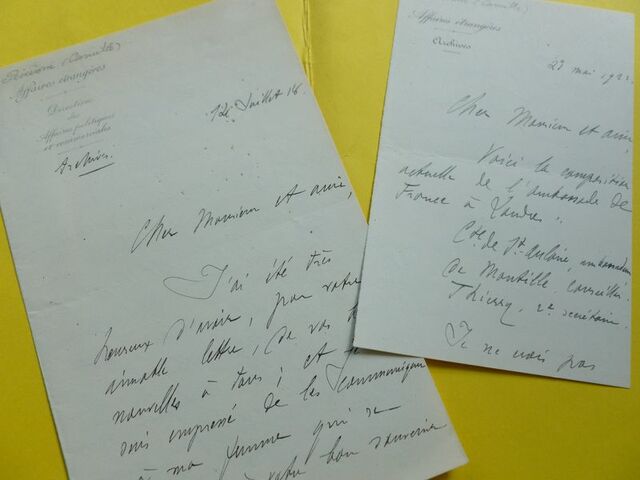 Affaires étrangères
Direction
des
Affaires politiques
et commerciales
Archives.
12 Juillet 16
Cher Monsieur et ami,
J'ai été très
heureux d'avoir, par votre
aimable lettre, de vos
nouvelles à tous; et je
suis empressé de les communiquer
à ma femme qui se
votre bon souvenir
Affaires étrangères
Archives
27 mai 192
Cher Monsieur et ami,
Voici la composition
actuelle de l'ambassade de
France à Londres.
Cte. de St. Aulaire, ambassadeur
de Montille, conseiller.
Thierry, secrétaire.
Je ne vois pas